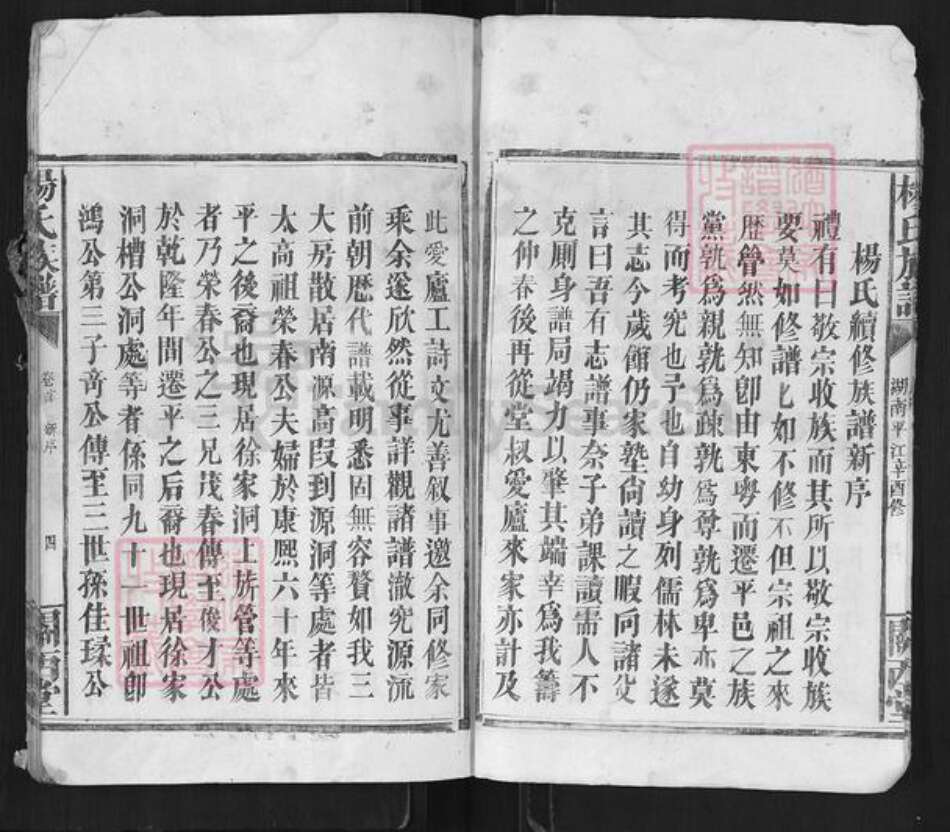 楊氏續修族譜新序
禮有曰敬宗收族而其所以敬宗收族
要莫如修譜譜如不修不但宗祖之來
歷管然無知卽由東粵而遷平邑之族
黨孰爲親孰爲疎孰爲尊孰爲卑亦莫
得而考究也予也自幼身列儒林未遂
其志今歲館仍家塾尙讀之暇向諸父
言曰吾有志譜事奈子弟課讀需人不
克厠身譜局竭力以肇其端幸爲我籌
之仲春後再從堂叔愛廬來家亦計及
此愛廬工詩文尤善叙事邀余同修家
乘余遂欣然從事詳觀諸譜澈究源流
前朝歷代譜載明悉固無容贅如我三
大房散居南源高叚到源洞等處者皆
太高祖榮春公夫婦於康熙六十年來
平之後裔也現居徐家洞上族管等處
者乃榮春公之三兄茂春傳至俊才公
於乾隆年間遷平之后裔也現居徐家
洞槽公洞處等者係同九十一世祖卽
鴻公第三子奇公傳至三世孫佳瑈公
楊氏族譜
湖南平江辛酉修
楊氏族譜
卷首 新序
四